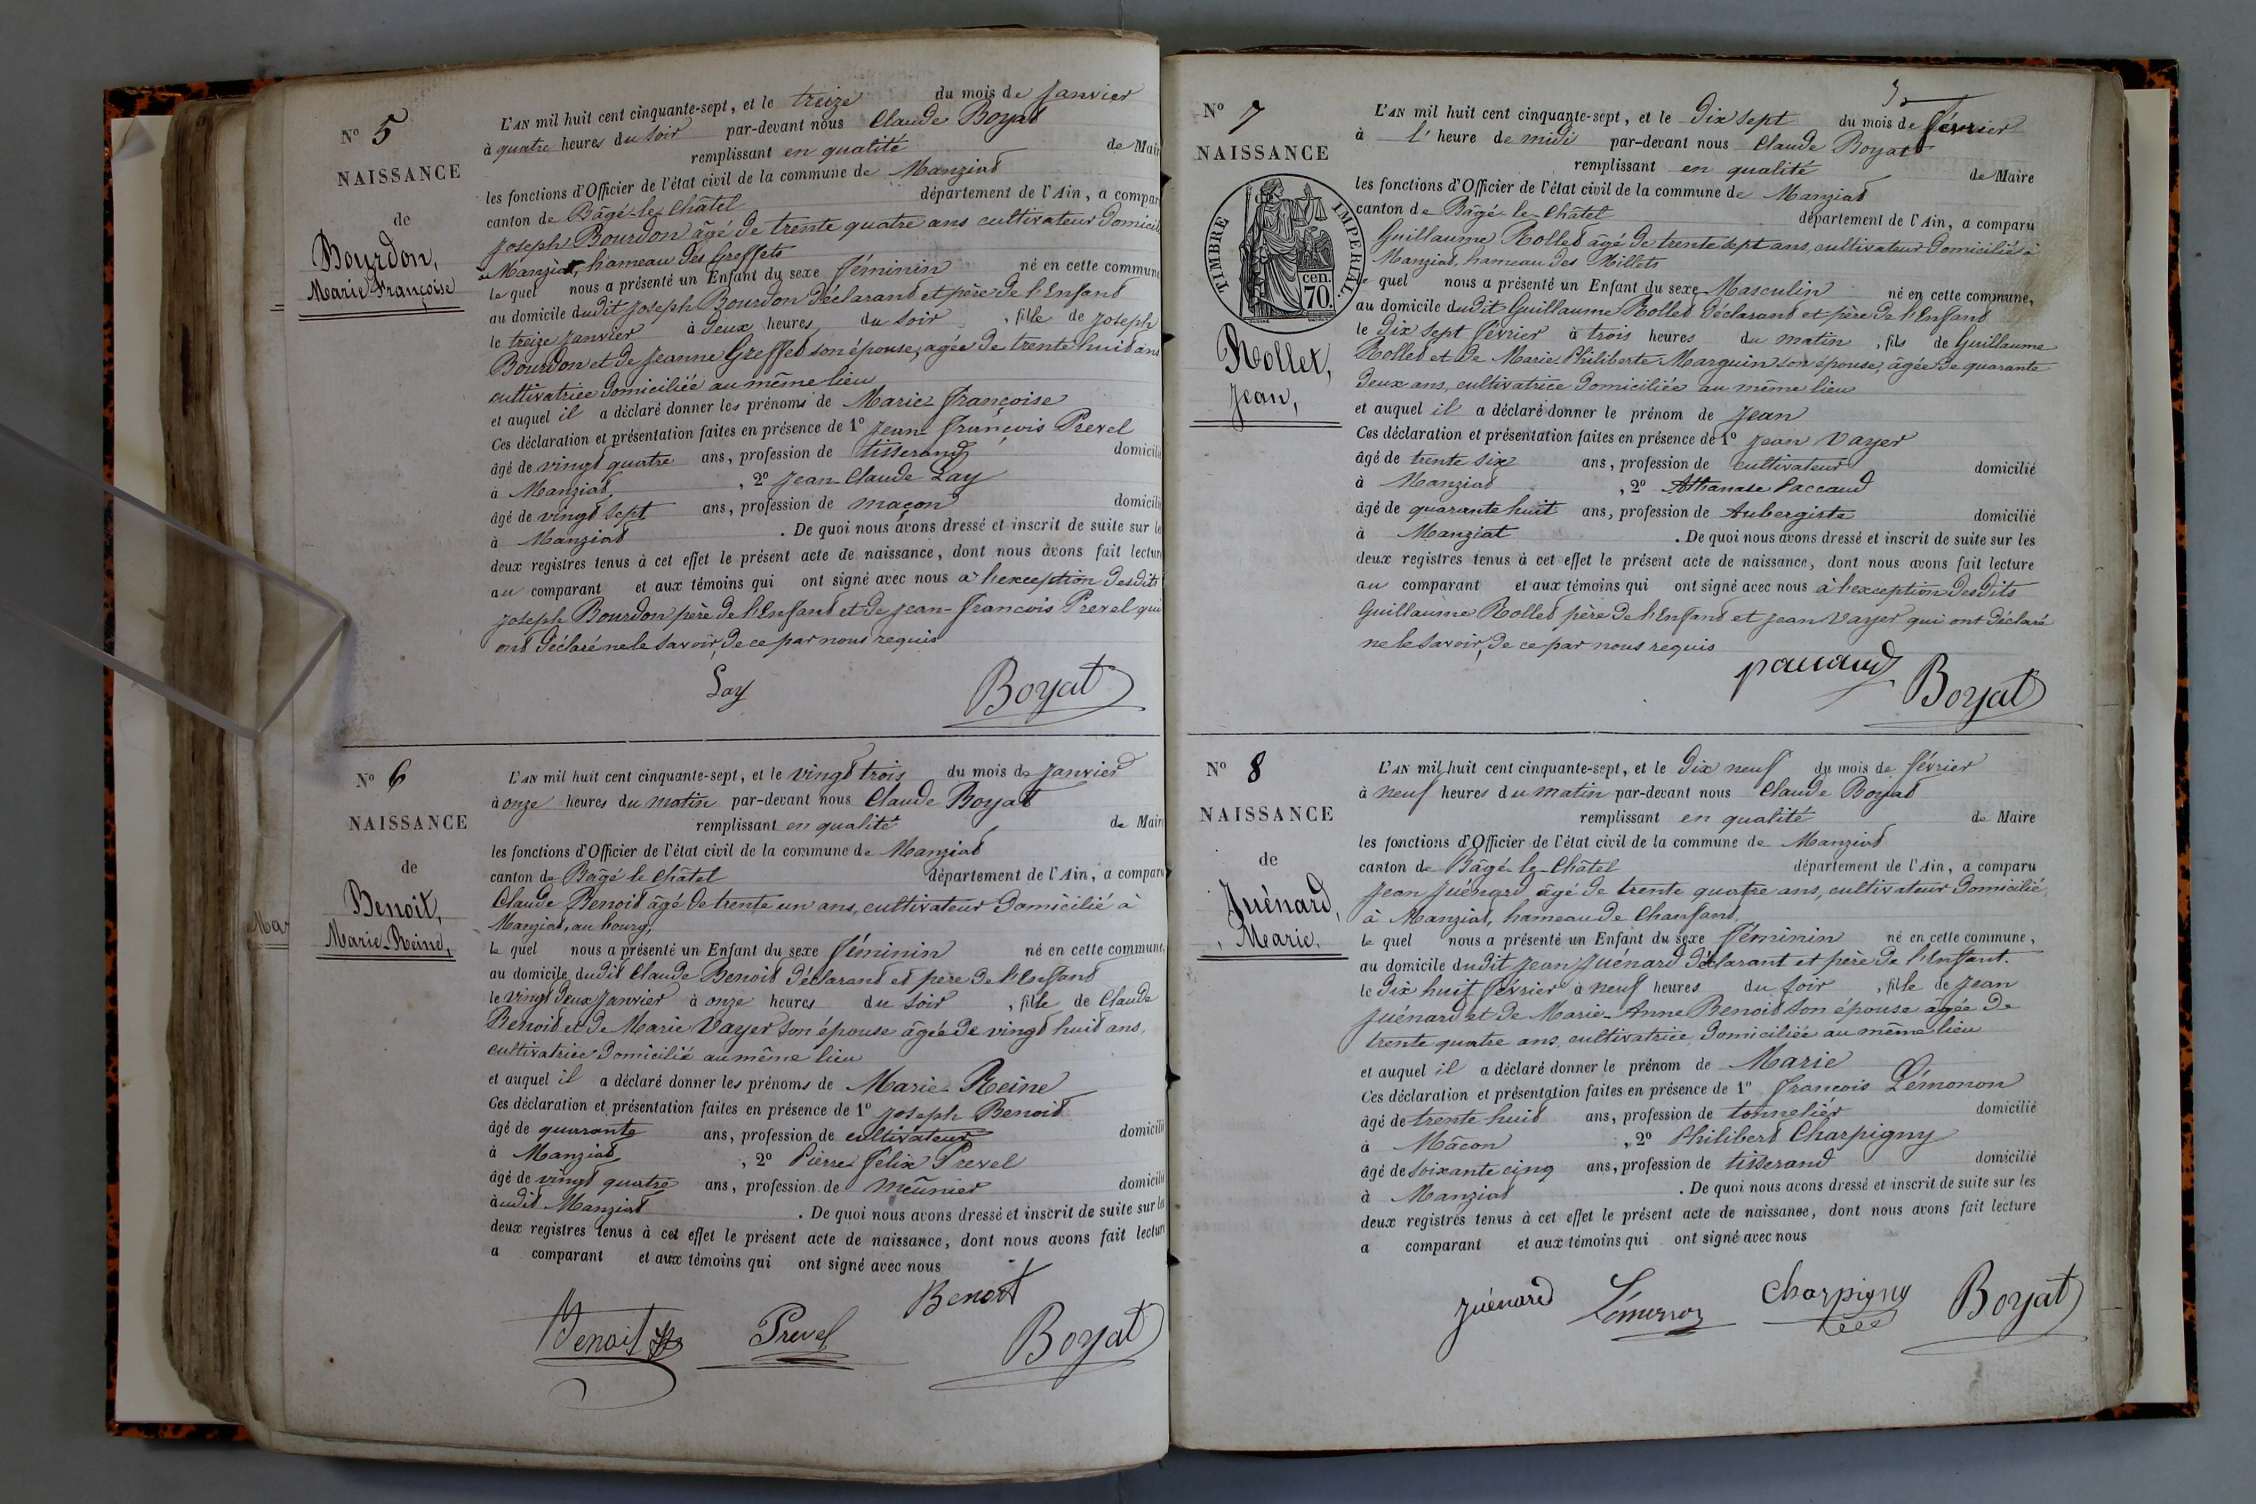 N° 5
NAISSANCE
de
Bourdon,
Marie Françoise
L'AN mil huit cent cinquante-sept, et le treize du mois de Janvier
à quatre heures du soir par-devant nous Claude Boyat
remplissant en qualité de Mair
les fonctions d'Officier de l'état civil de la commune de Manziat
canton de Bâgé-le-Châtel département de l'Ain, a compar
Joseph Bourdon âgé de trente quatre ans cultivateur domicil
à Manziat, hameau des Greffets
le quel nous a présenté un Enfant du sexe féminin né en cette commune
au domicile dudit Joseph Bourdon déclarant et père de l'Enfant
le treize Janvier à deux heures du soir, fille de Joseph
Bourdon et de Jeanne Greffet son épouse, agée de trente huit ans
cultivatrice domiciliée au même lieu
et auquel il a déclaré donner les prénoms de Marie Françoise
Ces déclaration et présentation faites en présence de 1° Jean-François Prevel
âgé de vingt quatre ans, profession de tisserand domicilié
à Manziat, 2° Jean-Claude Lay
âgé de vingt sept ans, profession de maçon domicilié
à Manziat. De quoi nous avons dressé et inscrit de suite sur le
deux registres tenus à cet effet le présent acte de naissance, dont nous avons fait lecture
au comparant et aux témoins qui ont signé avec nous à l'exception desdits
Joseph Bourdon père de l'Enfant et de Jean-François Prevel qui
ont déclaré ne le savoir, de ce par nous requis
Lay Boyat
N° 6
NAISSANCE
de
Benoit,
Marie-Reine,
Mar
L'AN mil huit cent cinquante-sept, et le vingt trois du mois de Janvier
à onze heures du matin par-devant nous Claude Boyat
remplissant en qualité de Maire
les fonctions d'Officier de l'état civil de la commune de Manziat
canton de Bâgé le Châtel département de l'Ain, a comparu
Claude Benoit âgé de trente un ans, cultivateur domicilié à
Manziat, au bourg,
le quel nous a présenté un Enfant du sexe féminin né en cette commune,
au domicile dudit Claude Benoit déclarant et père de l'Enfant
le vingt deux Janvier à onze heures du soir, fille de Claude
Benoit et de Marie Vayer son épouse âgée de vingt huit ans,
cultivatrice domicilié au même lieu
et auquel il a déclaré donner les prénoms de Marie-Reine
Ces déclaration et présentation faites en présence de 1° Joseph Benoit
âgé de quarante ans, profession de cultivateur domicilié
à Manziat, 2° Pierre Félix Prevel
âgé de vingt quatre ans, profession de meûnier domicilié
àudit Manziat. De quoi nous avons dressé et inscrit de suite sur les
deux registres tenus à cet effet le présent acte de naissance, dont nous avons fait lecture
a comparant et aux témoins qui ont signé avec nous
Benoit Prevel Benoit Boyat
3
N° 7
NAISSANCE
TIMBRE IMPERIAL.
cen.
70.
Rollet,
Jean,
L'AN mil huit cent cinquante-sept, et le dix sept du mois de février
à l'heure de midi par-devant nous Claude Boyat
remplissant en qualité de Maire
les fonctions d'Officier de l'état civil de la commune de Manziat
canton de Bâgé-le-Châtel département de l'Ain, a comparu
Guillaume Rollet âgé de trente sept ans, cultivateur domicilié à
Manziat, hameau des Millets
le quel nous a présenté un Enfant du sexe Masculin né en cette commune,
au domicile dudit Guillaume Rollet déclarant et père de l'Enfant
le dix sept février à trois heures du matin, fils de Guillaume
Rollet et de Marie Philiberte Marguin son épouse, âgée de quarante
deux ans, cultivatrice domiciliée au même lieu
et auquel il a déclaré donner le prénom de Jean
Ces déclaration et présentation faites en présence de 1° Jean Vayer
âgé de trente six ans, profession de cultivateur domicilié
à Manziat, 2° Athanase Paccaud
âgé de quarante huit ans, profession de Aubergiste domicilié
à Manziat. De quoi nous avons dressé et inscrit de suite sur les
deux registres tenus à cet effet le présent acte de naissance, dont nous avons fait lecture
au comparant et aux témoins qui ont signé avec nous à l'exception desdits
Guillaume Rollet père de l'Enfant et Jean Vayer qui ont déclaré
ne le savoir, de ce par nous requis
paccaud Boyat
N° 8
NAISSANCE
de
Juénard,
Marie,
L'AN mil huit cent cinquante-sept, et le dix neuf du mois de février
à neuf heures du matin par-devant nous Claude Boyat
remplissant en qualité de Maire
les fonctions d'Officier de l'état civil de la commune de Manziat
canton de Bâgé-le-Châtel département de l'Ain, a comparu
Jean Juénard âgé de trente quatre ans, cultivateur domicilié
à Manziat, hameau de Chanfant,
le quel nous a présenté un Enfant du sexe féminin né en cette commune,
au domicile dudit Jean Juénard déclarant et père de l'Enfant.
le dix huit février à neuf heures du soir, fille de Jean
Juénard et de Marie-Anne Benoit son épouse âgée de
trente quatre ans, cultivatrice, domiciliée au même lieu
et auquel il a déclaré donner le prénom de Marie
Ces déclaration et présentation faites en présence de 1° françois Lémonon
âgé de trente huit ans, profession de tonnelier domicilié
à Mâcon, 2° Philibert Charpigny
âgé de soixante cinq ans, profession de tisserand domicilié
à Manziat. De quoi nous avons dressé et inscrit de suite sur les
deux registres tenus à cet effet le présent acte de naissance, dont nous avons fait lecture
a comparant et aux témoins qui ont signé avec nous
Juénard Lémonon Charpigny Boyat